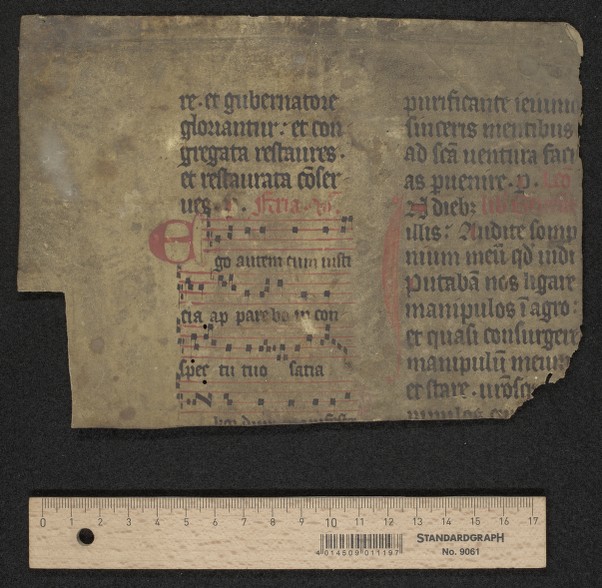 re. et gubernatore
gloriantur: et con
gregata restaures.
et restaurata c̄oser
ues. P. Feria
Ego autem cum iusti
cia ap pare bo in con
spec tu tuo satia
purificante ieiunio
sinceris mentibus
ad sc̄a uentura faci
as puenire. p.
dieb;
illis: Audite somp
nium meū qd̄ uidi
Putabā nos ligare
manipulos ī agro:
et quasi consurgere
manipulū meum
et stare.
0 1 2 3 4 5 6 7 8 9 10 11 12 13 14 15 16 17
4 014509 011197
STANDARDGRAPH
No. 9061